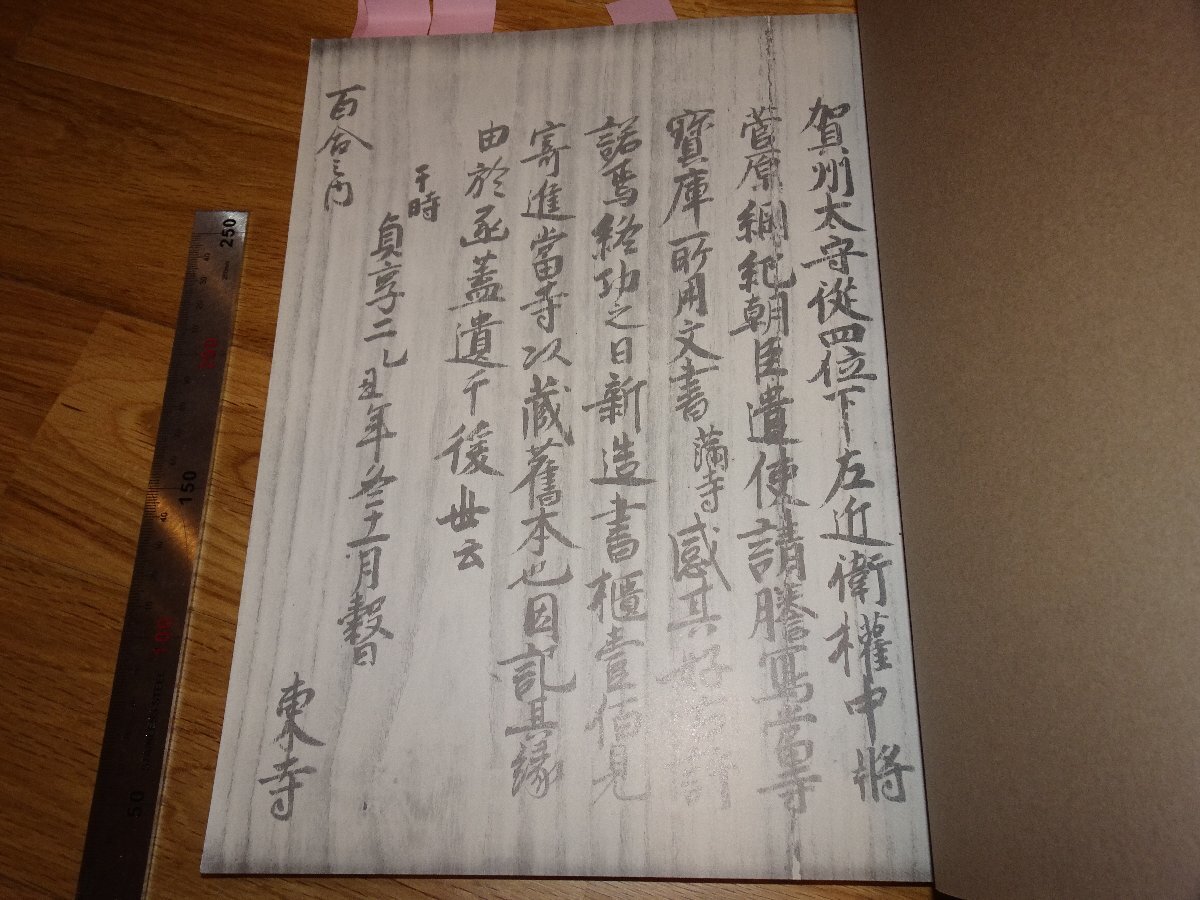 賀州太守從四位下左近衛權中將
菅原綱紀朝臣遣使請謄寫當寺
寶庫所用文書滿寺感其好古許
諾焉終功之日新造書櫃壹佰見
寄進當寺以藏舊本也因記其縁
由於函蓋遺千後世云
于時
貞享二乙丑年冬十一月穀日
東寺
百合之内
250
150
100
50